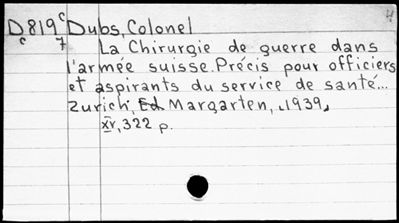 4
D819c Dubs, Colonel
c 7 La Chirurgie de guerre dans
l'armée suisse. Précis pour officiers
et aspirants du service de santé...
Zurich, Ed. Margarten, 1939.
xv, 322 p.